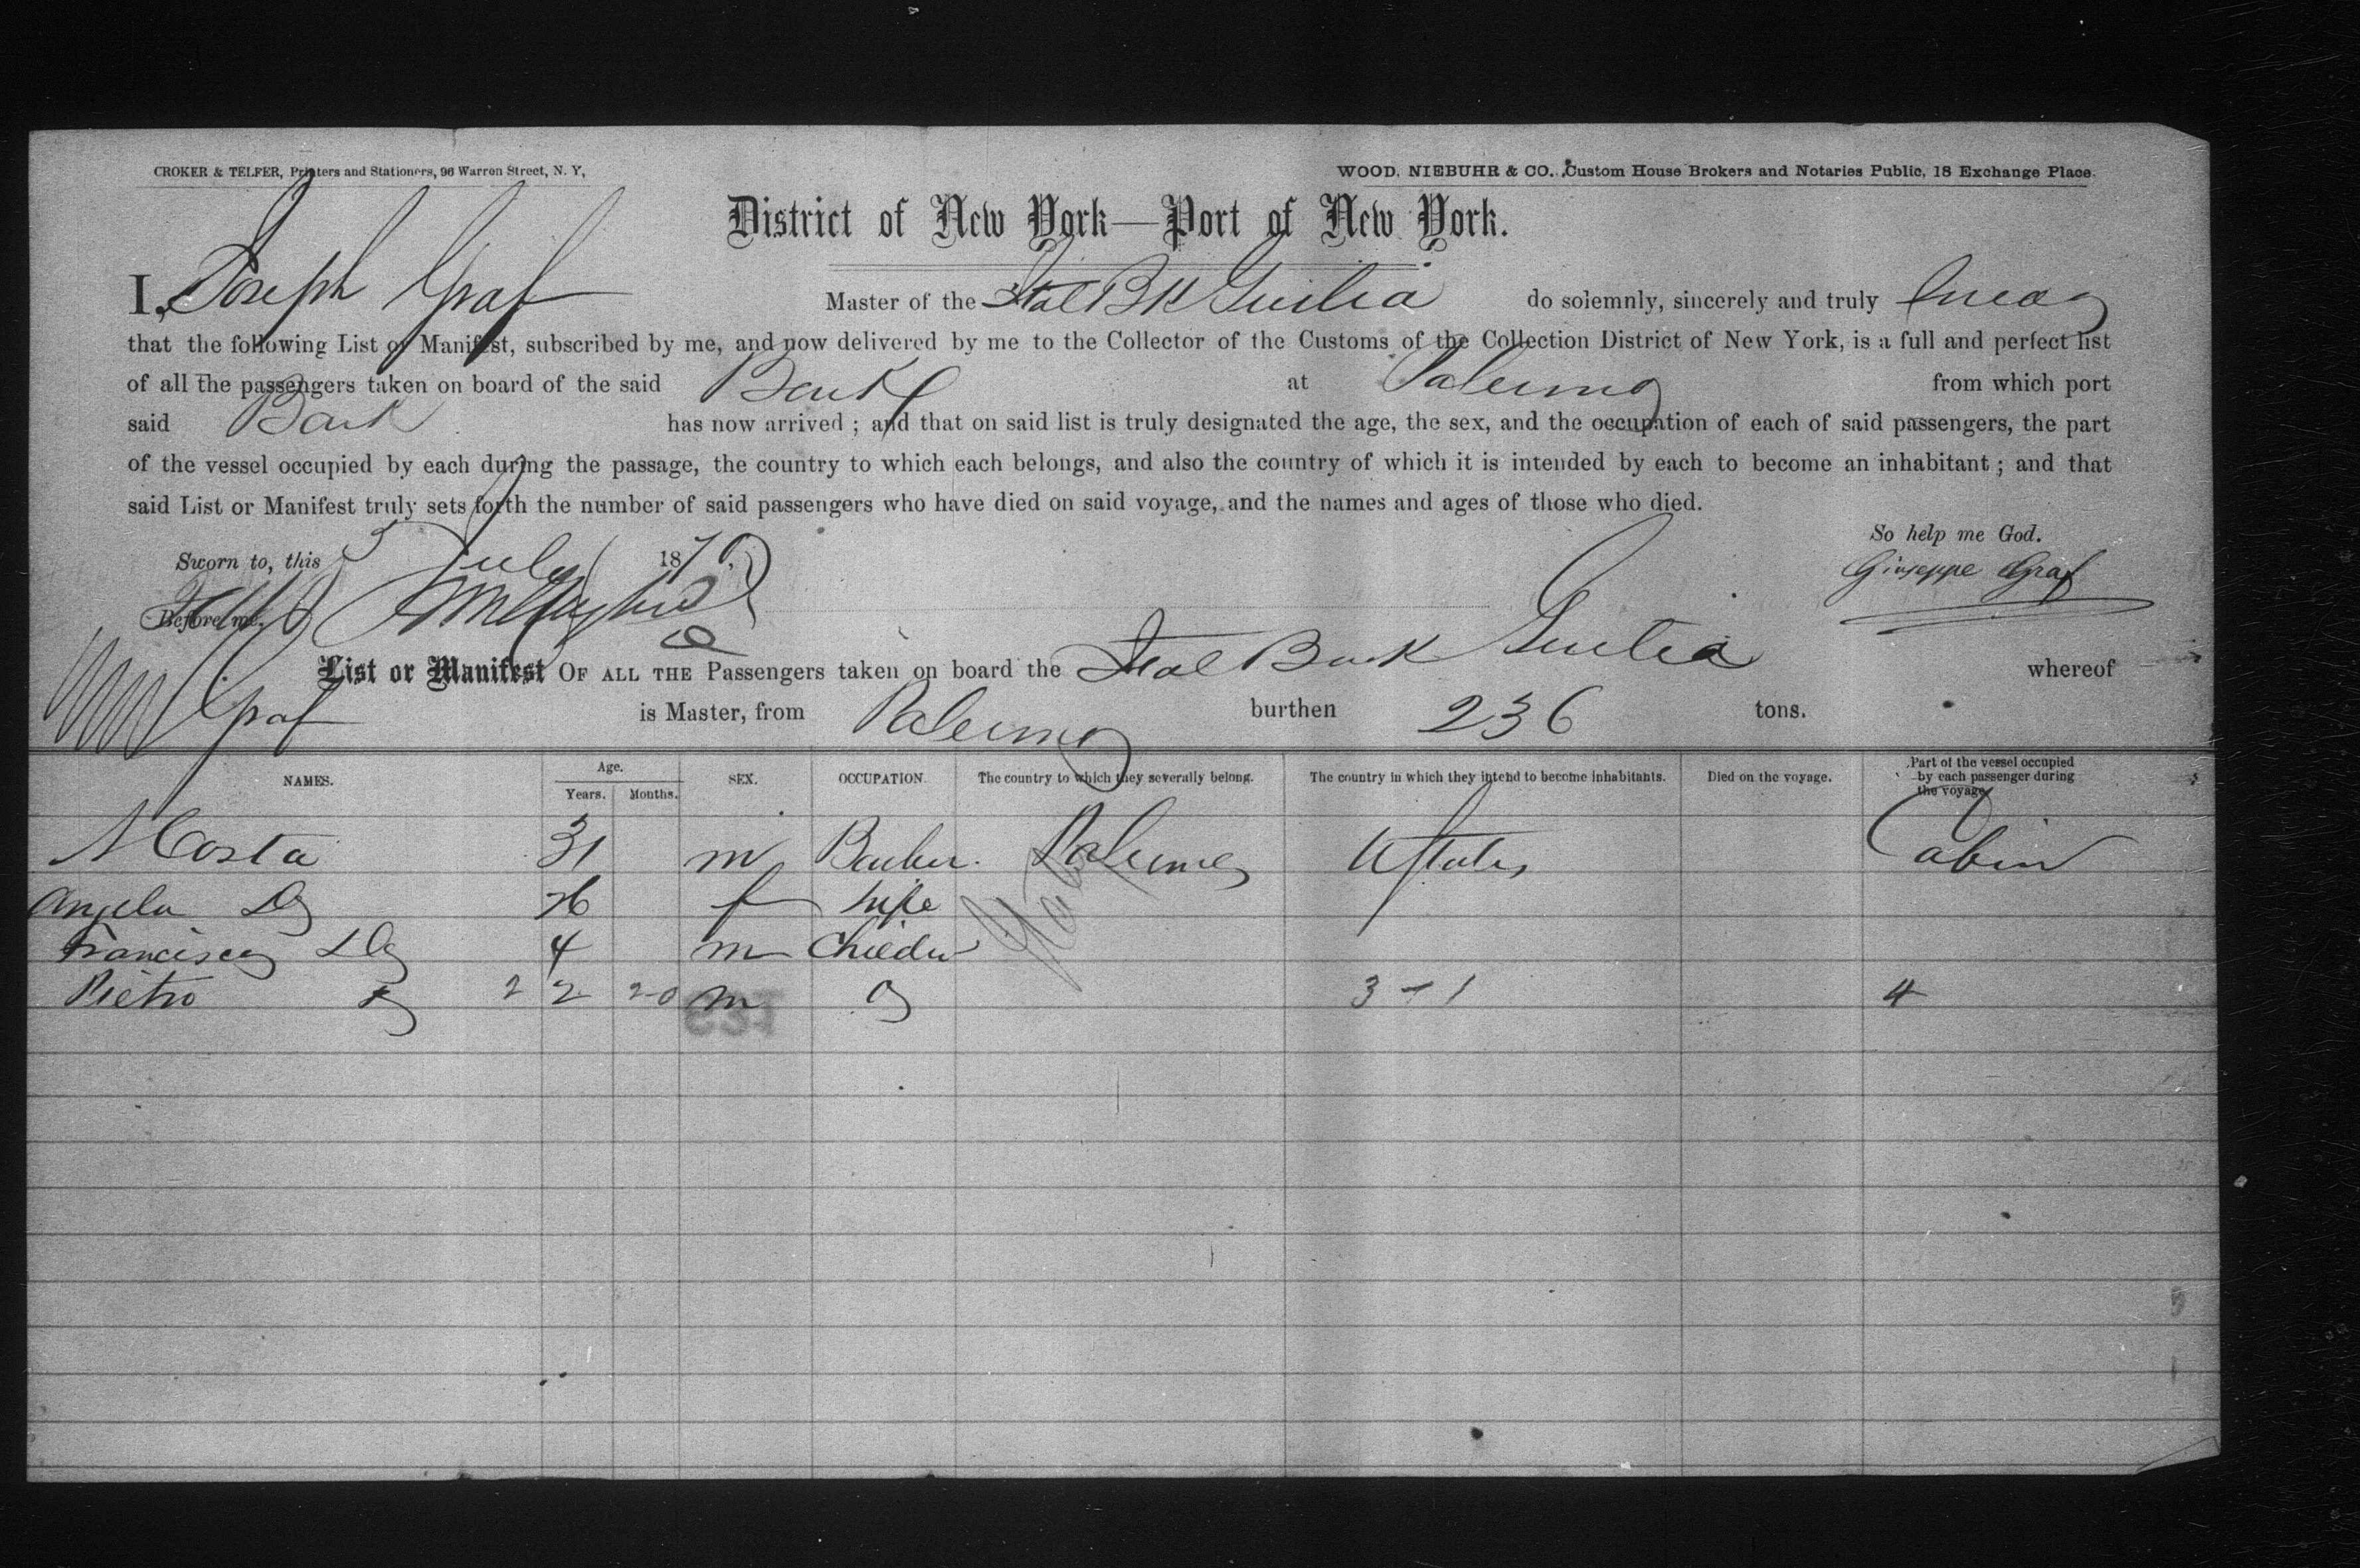 CROKER & TELFER, Printers and Stationers, 96 Warren Street, N. Y,
WOOD, NIEBUHR & CO. Custom House Brokers and Notaries Public, 18 Exchange Place.
District of New York—Port of New York.
I, Joseph Graf Master of the Ital Bk Giulia do solemnly, sincerely and truly swear
that the following List or Manifest, subscribed by me, and now delivered by me to the Collector of the Customs of the Collection District of New York, is a full and perfect list
of all the passengers taken on board of the said Bark at Palermo from which port
said Bark has now arrived ; and that on said list is truly designated the age, the sex, and the occupation of each of said passengers, the part
of the vessel occupied by each during the passage, the country to which each belongs, and also the country of which it is intended by each to become an inhabitant ; and that
said List or Manifest truly sets forth the number of said passengers who have died on said voyage, and the names and ages of those who died.
So help me God.
Sworn to, this 5 July 187
Giuseppe Graf
Before me,
List or Manifest OF ALL THE Passengers taken on board the Ital Bark Giulia whereof
Graf is Master, from Palermo burthen 236 tons.
NAMES. Age. Years. Months. SEX. OCCUPATION. The country to which they severally belong. The country in which they intend to become inhabitants. Died on the voyage. Part of the vessel occupied by each passenger during the voyage
Costa 31 m Barber Palermo UStates Cabin
Angela Do 26 f wife
Francisco Do 4 m Children
Pietro 2 2 20 m 3 - 1 4